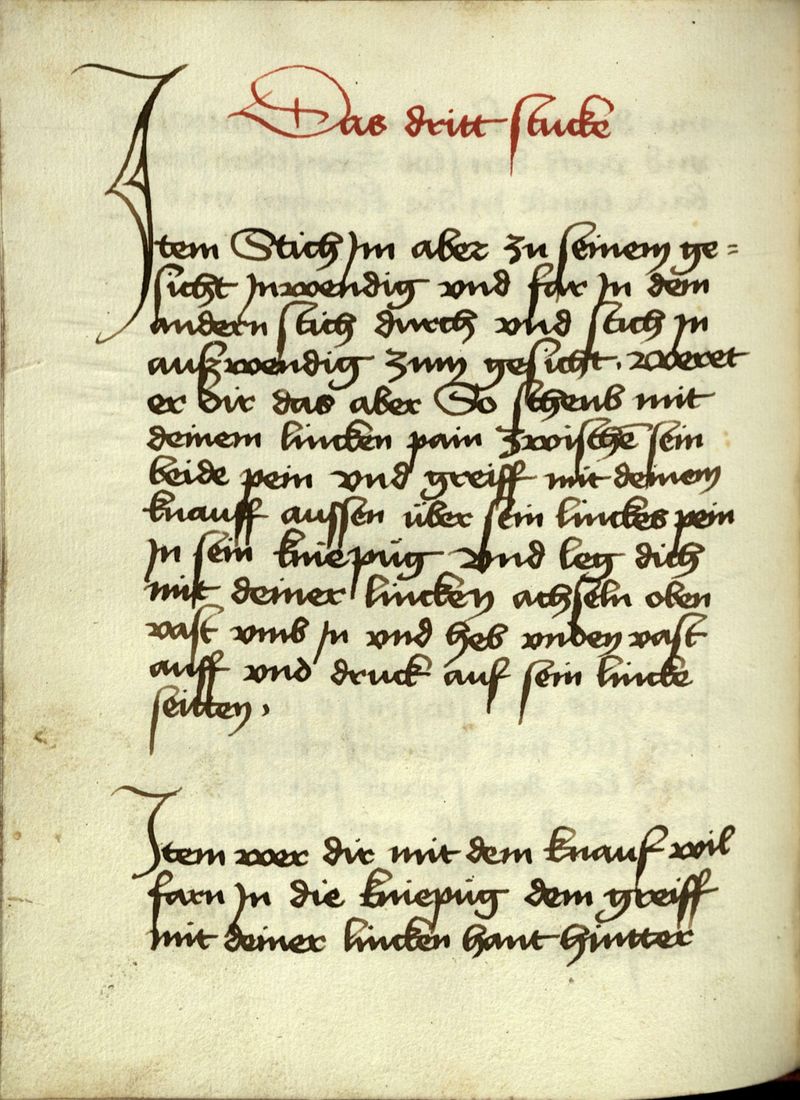 Das dritt stucke
Item Stich Jm aber zu seinem ge=
sicht Jnwendig vnd far Jn dem
andern stich durch vnd stich Jn
außwendig zum gesicht. Weret
er dir das aber So scheub mit
deinem lincken pain zwischē sein
beide pein vnd greiff mit deinem
knauff aussen über sein linckes pein
Jn sein kniepüg vnd leg dich
mit deiner lincken achseln oben
vast vmb Jn vnd heb vnden vast
auff vnd druck auf sein lincke
seitten,
Item wer dir mit dem knauf wil
farn Jn die kniepüg dem greiff
mit deiner lincken hant hintter